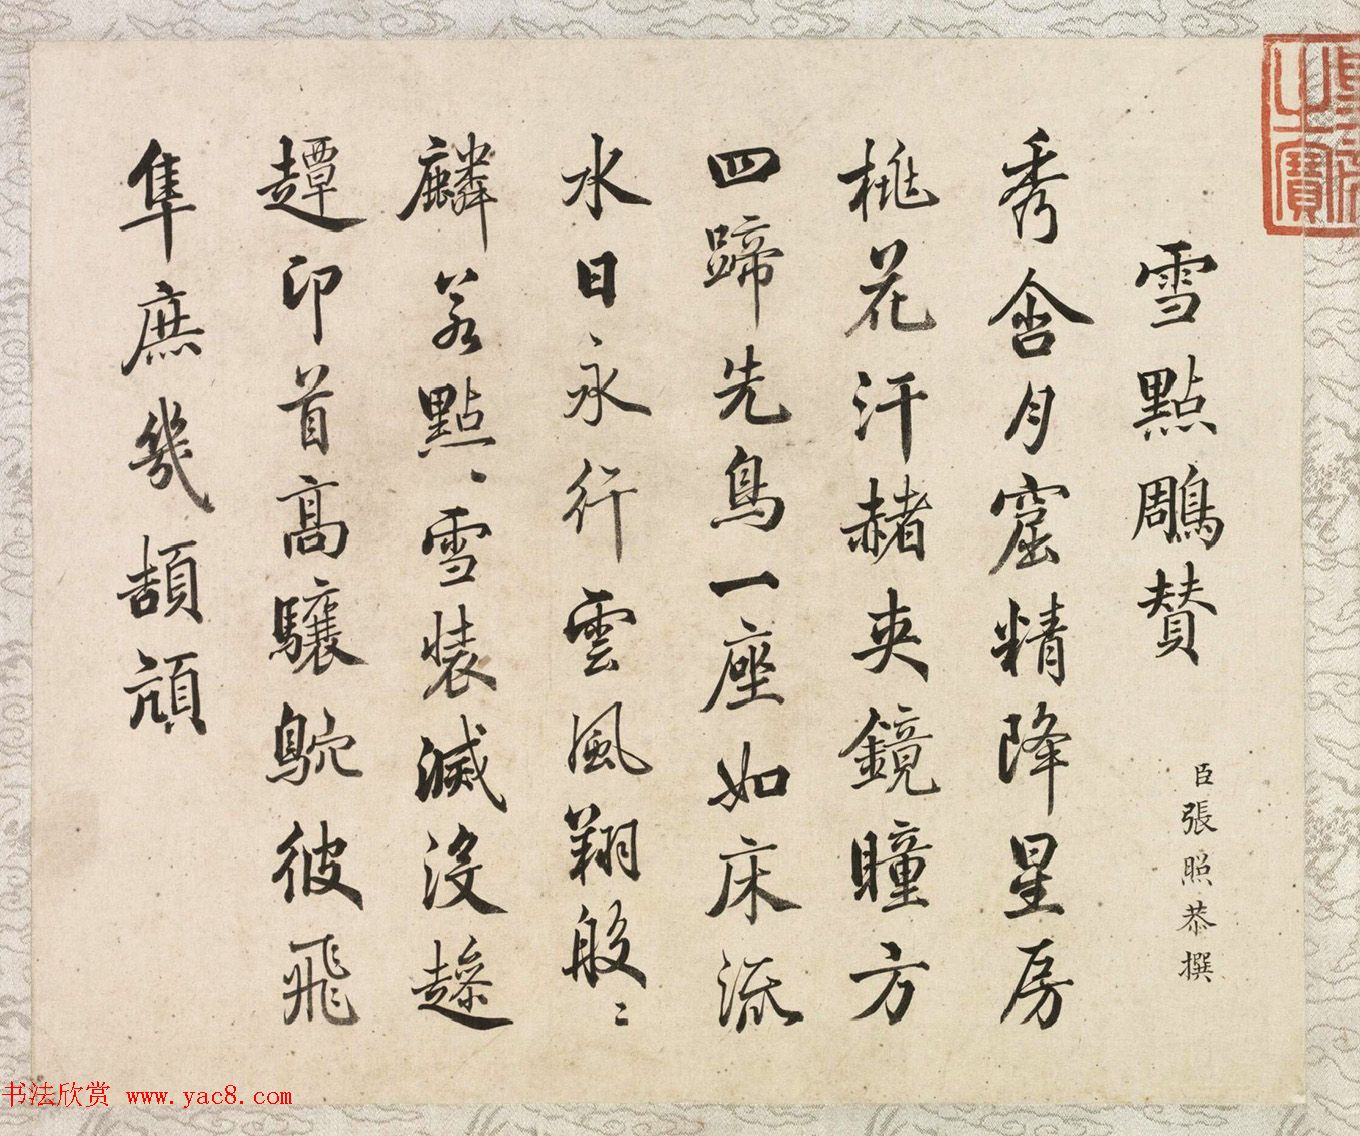 雪點鵰賛
臣張照恭撰
秀含月窟精降星房
桃花汗赭夾鏡瞳方
四蹄先鳥一座如床流
水日永行雲風翔般〻
麟若點〻雪裝滅沒趮
趯卬首高驤鴥彼飛
隼庶幾頡頏
之寶
书法欣赏 www.yac8.com